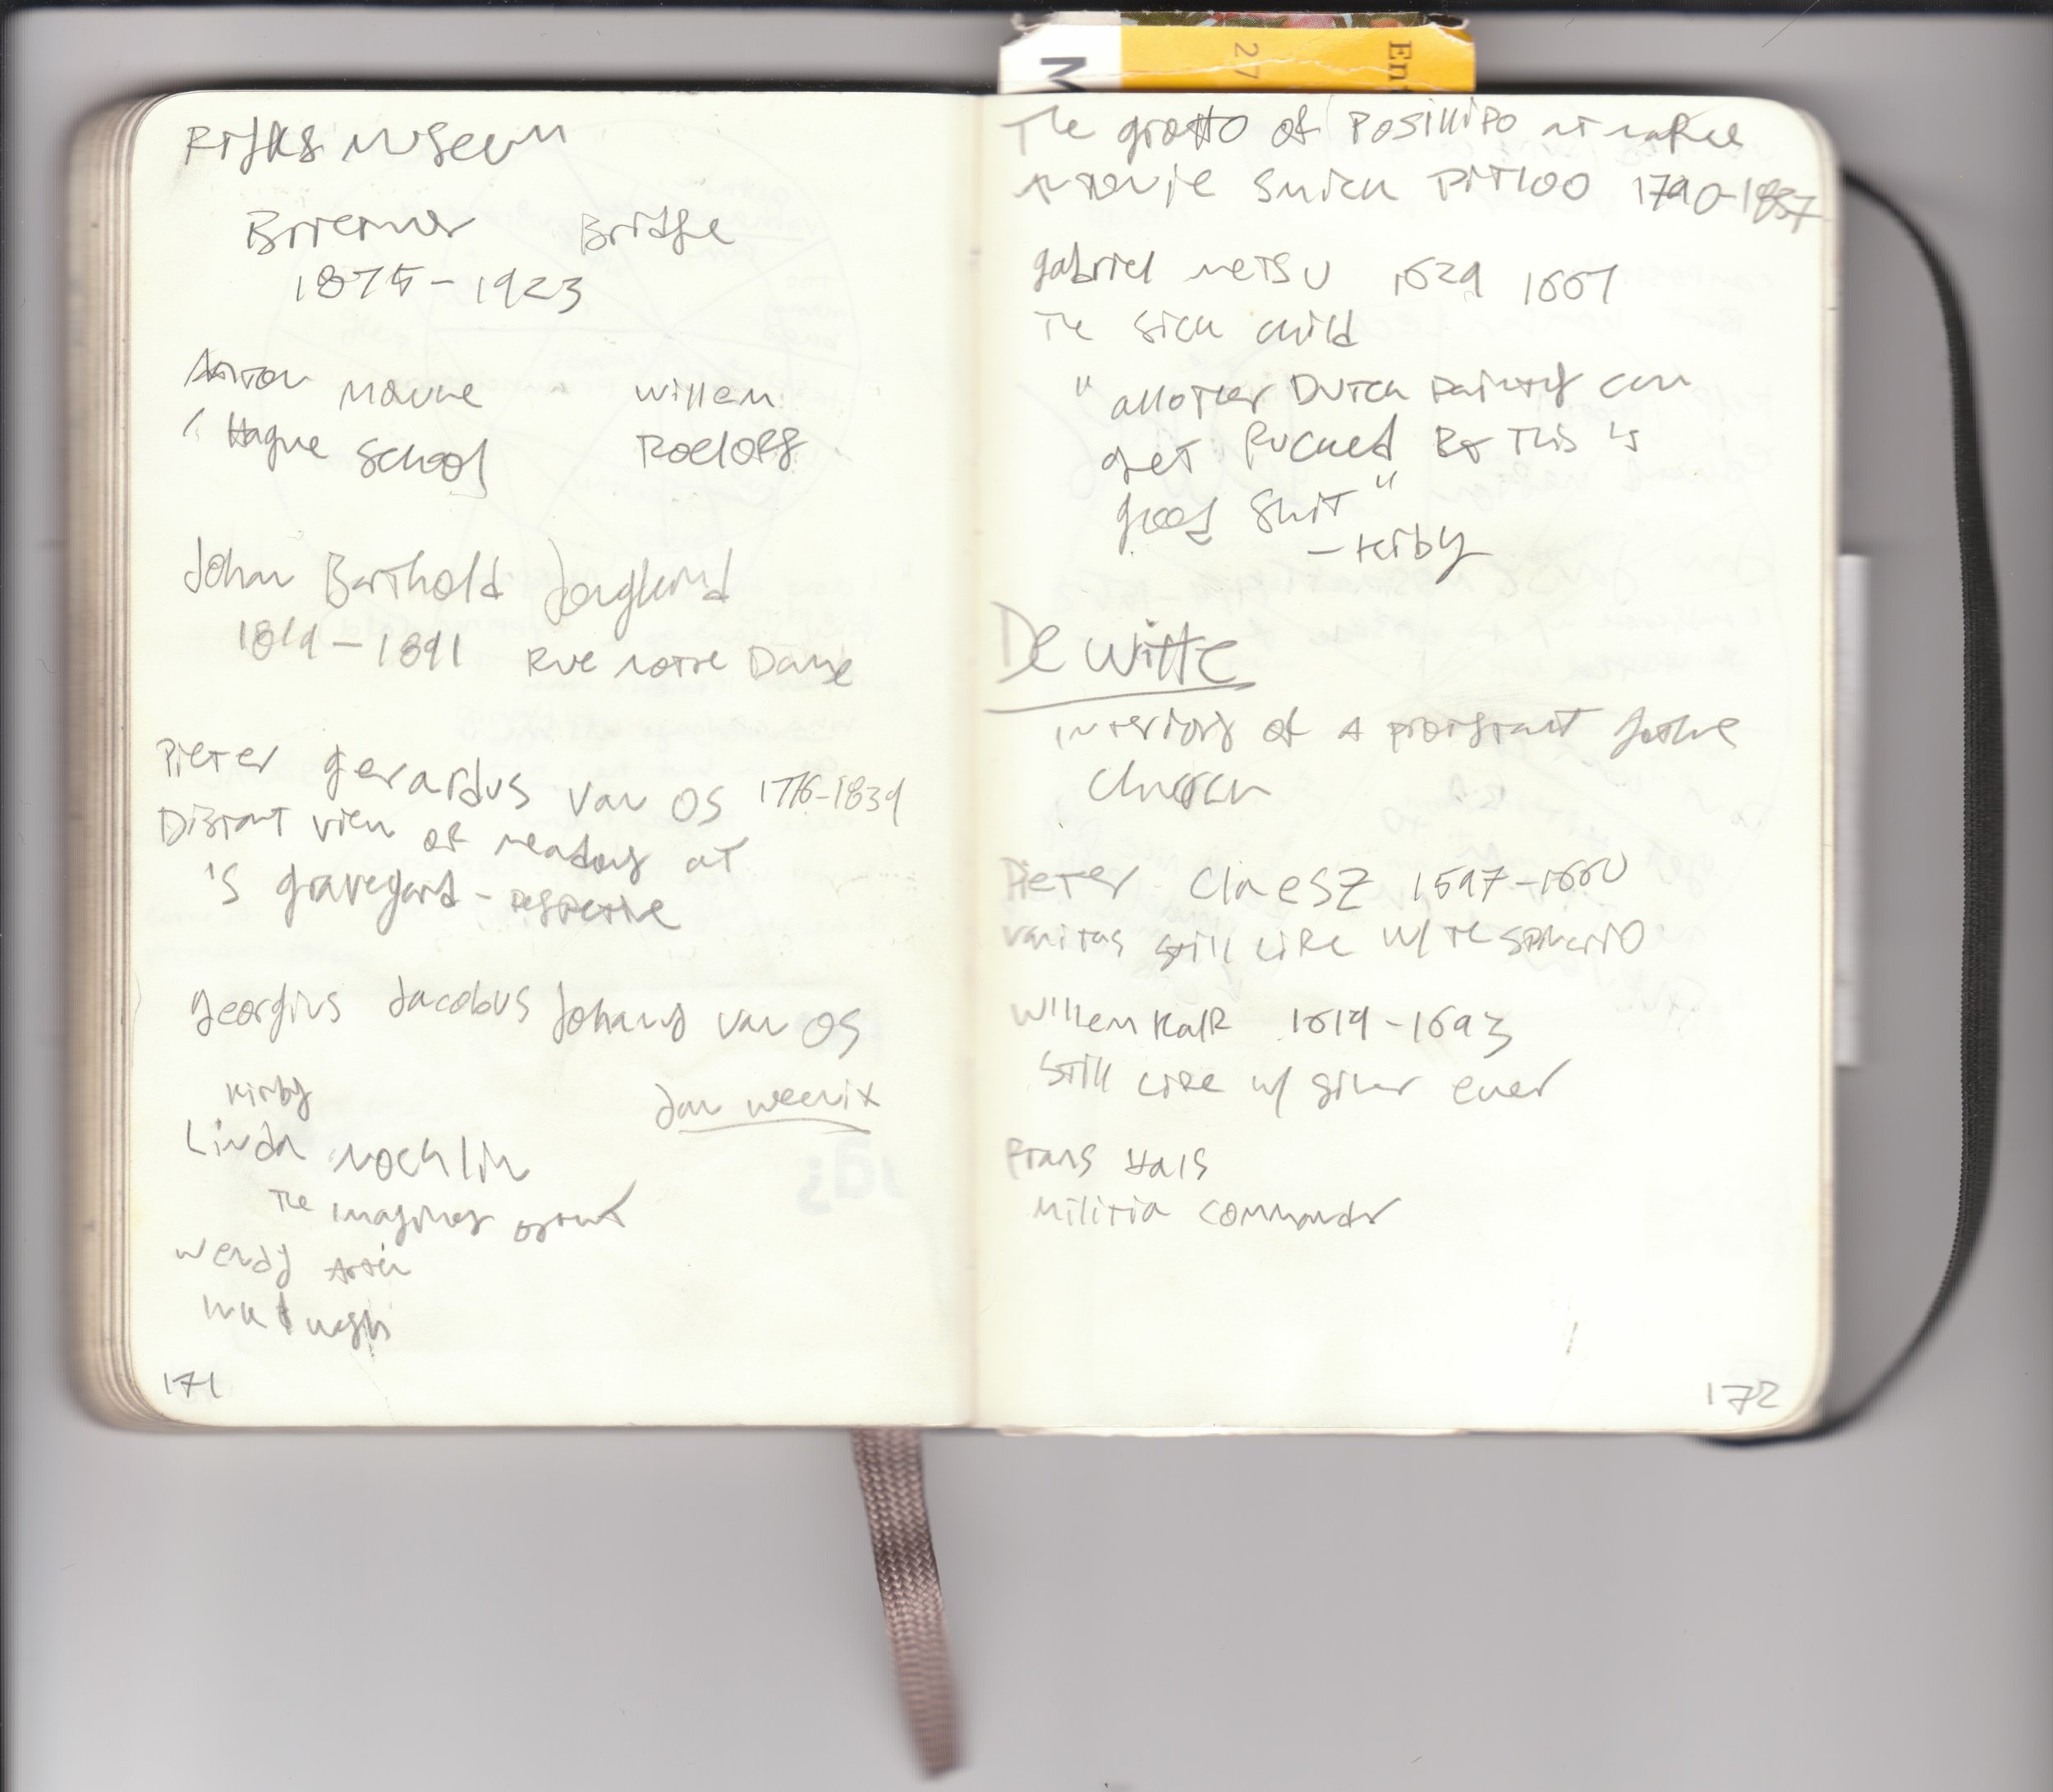 Rijks museum
Breitner Bridge
1875-1923
Anton Mauve - Willem
" Hague School Roelofs
Johan Barthold Jongkind
1819-1891 Rue notre Dame
Pieter gerardus van OS 1776-1839
Distant view of meadows at
's graveyard -
georgius Jacobus Johans van OS
Kirby
Jan weenix
Linda nochlin
The imaginary orient
Wendy
171
M 27 En
The grotto of Posillipo at naples
Smick PITLOO 1790-1837
gabriel metsu 1629 1667
The sick child
"all other Dutch painting can
get fucked Bt This is
good shit"
-Kirby
De witte
interiors of A protestant gothic
church
Pieter Claesz 1597-1660
vanitas still Life w/ The spinario
Willem Kalf 1619-1693
Still Life w/ silver ewer
Frans Hals
Militia commander
172